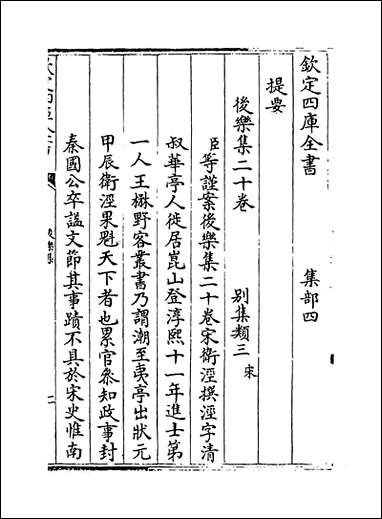 欽定四庫全書　集部四
提要
後樂集二十卷　别集類三宋
臣等謹案後樂集二十卷宋衛涇撰涇字清
叔華亭人徙居崑山登淳熙十一年進士第
一人王楙野客叢書乃謂潮至夷亭出狀元
甲辰衛涇果魁天下者也累官叅知政事封
秦國公卒諡文節其事蹟不具於宋史惟南
後樂集